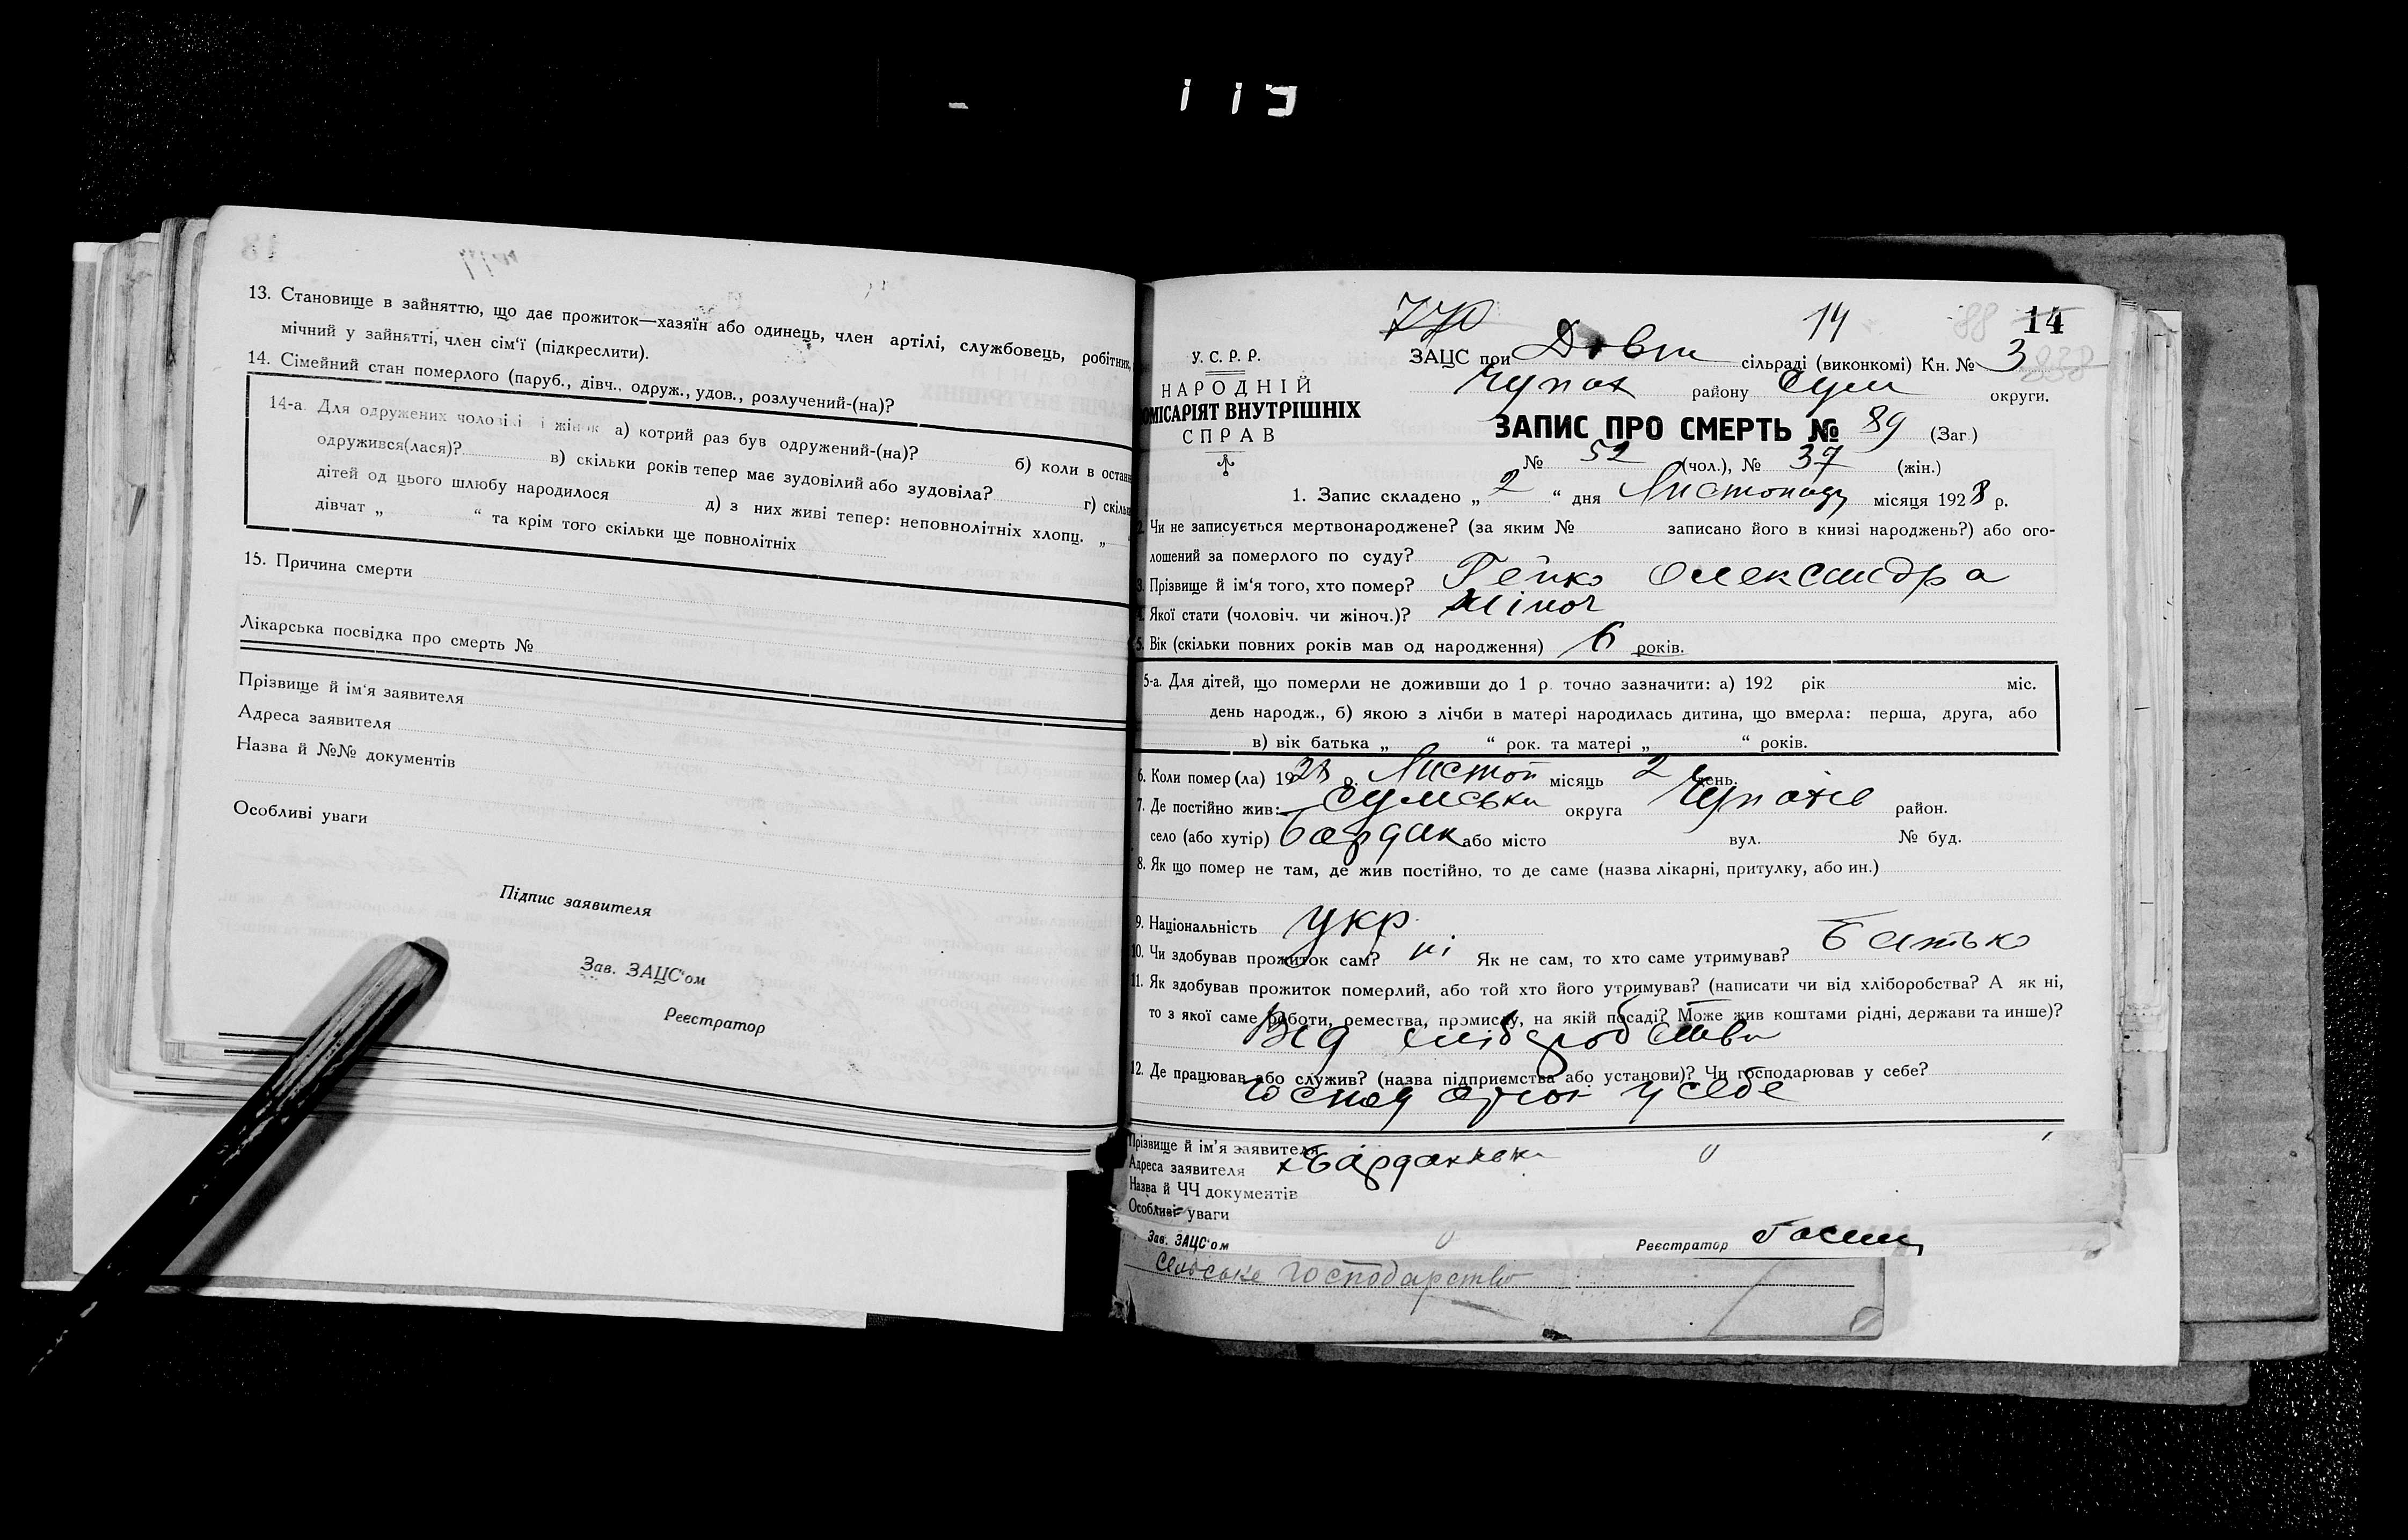 13. Становище в зайняттю, що дає прожиток—хазяїн або одинець, член артілі, службовець, робітник,
мічний у зайнятті, член сім'ї (підкреслити).
14. Сімейний стан померлого (паруб., дівч., одруж., удов., розлучений-(на)?
14-а. Для одружених чоловіків і жінок а) котрий раз був одружений-(на)? б) коли в останн
одружився(лася)? в) скільки років тепер має зудовілий або зудовіла? г) скільк
дітей од цього шлюбу народилося д) з них живі тепер: неповнолітніх хлопц. „
дівчат „ “ та крім того скільки ще повнолітніх
15. Причина смерти
Лікарська посвідка про смерть №
Прізвище й ім'я заявителя
Адреса заявителя
Назва й №№ документів
Особливі уваги
Підпис заявителя
Зав. ЗАЦС'ом
Реєстратор
770 14 88 14
У. С. Р. Р.
НАРОДНІЙ
ОМІСАРІЯТ ВНУТРІШНІХ
СПРАВ
ЗАЦС при Довж сільраді (виконкомі) Кн. № 3 238
Чупах району Сум округи.
ЗАПИС ПРО СМЕРТЬ № 89 (Заг.)
№ 52 (чол.), № 37 (жін.)
1. Запис складено „ 2 “ дня Листопаду місяця 1928 р.
2. Чи не записується мертвонароджене? (за яким № записано його в книзі народжень?) або ого-
лошений за померлого по суду?
3. Прізвище й ім'я того, хто помер? Гейко Олександра
4. Якої стати (чоловіч. чи жіноч.)? жіноч
5. Вік (скільки повних років мав од народження) 6 років.
5-а. Для дітей, що померли не доживши до 1 р. точно зазначити: а) 192 рік міс.
день народж., б) якою з лічби в матері народилась дитина, що вмерла: перша, друга, або
в) вік батька „ “ рок. та матері „ “ років.
6. Коли помер (ла) 1928 р. Листоп місяць 2 день.
7. Де постійно жив: Сумська округа Чупахів район.
село (або хутір) Бардак або місто вул. № буд.
8. Як що помер не там, де жив постійно, то де саме (назва лікарні, притулку, або ин.)
9. Національність укр.
10. Чи здобував прожиток сам? ні Як не сам, то хто саме утримував? Батько
11. Як здобував прожиток померлий, або той хто його утримував? (написати чи від хліборобства? А як ні,
то з якої саме роботи, ремества, промислу, на якій посаді? Може жив коштами рідні, держави та инше)?
Від хліборобства
12. Де працював або служив? (назва підприємства або установи)? Чи господарював у себе?
Господарює у себе
Прізвище й ім'я заявителя
Адреса заявителя х Бардаківка
Назва й ЧЧ документів
Особливі уваги
Зав. ЗАЦС'ом Реєстратор
Сельське господарство